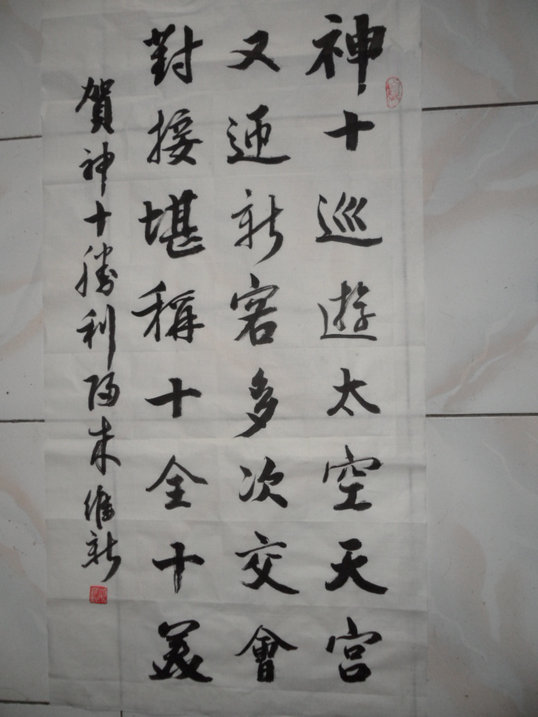 神十巡遊太空天宮
又迎新客多次交會
對接堪稱十全十美
賀神十勝利歸來維新